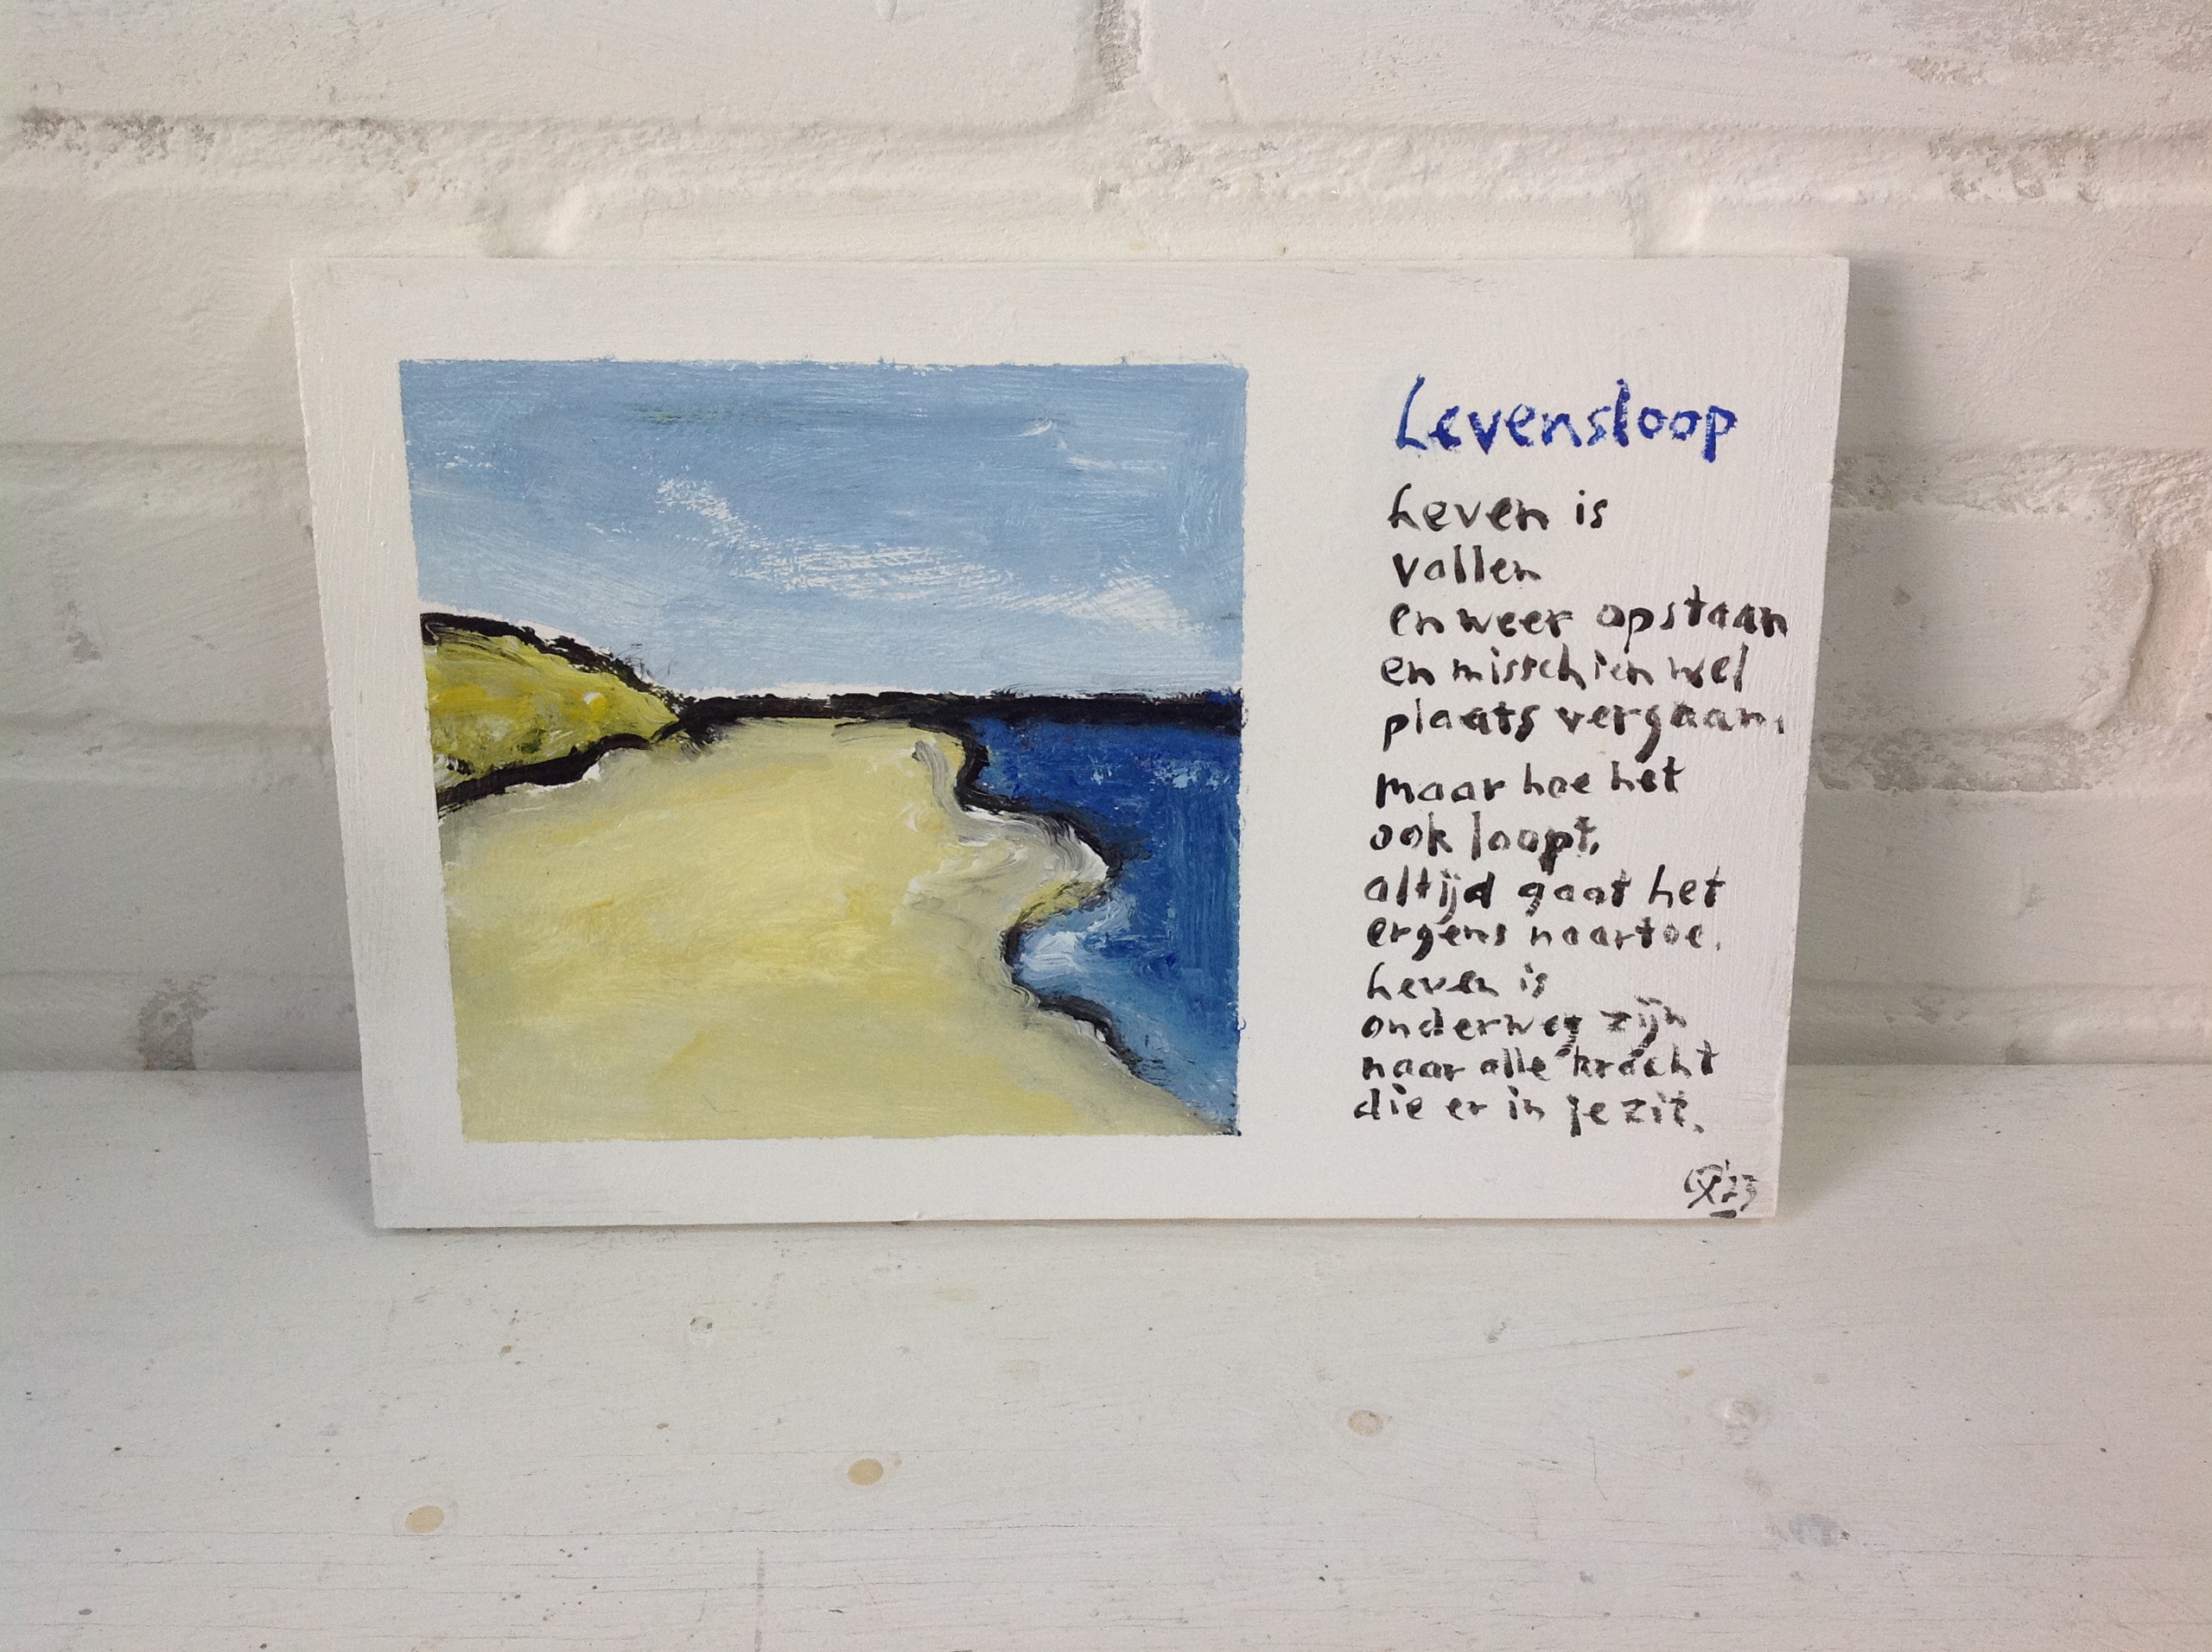 Levensloop
Leven is
vallen
en weer opstaan
en misschien wel
plaats vergaan.
maar hoe het
ook loopt,
altijd gaat het
ergens naartoe.
Leven is
onderweg zijn
naar alle kracht
die er in je zit.
'23